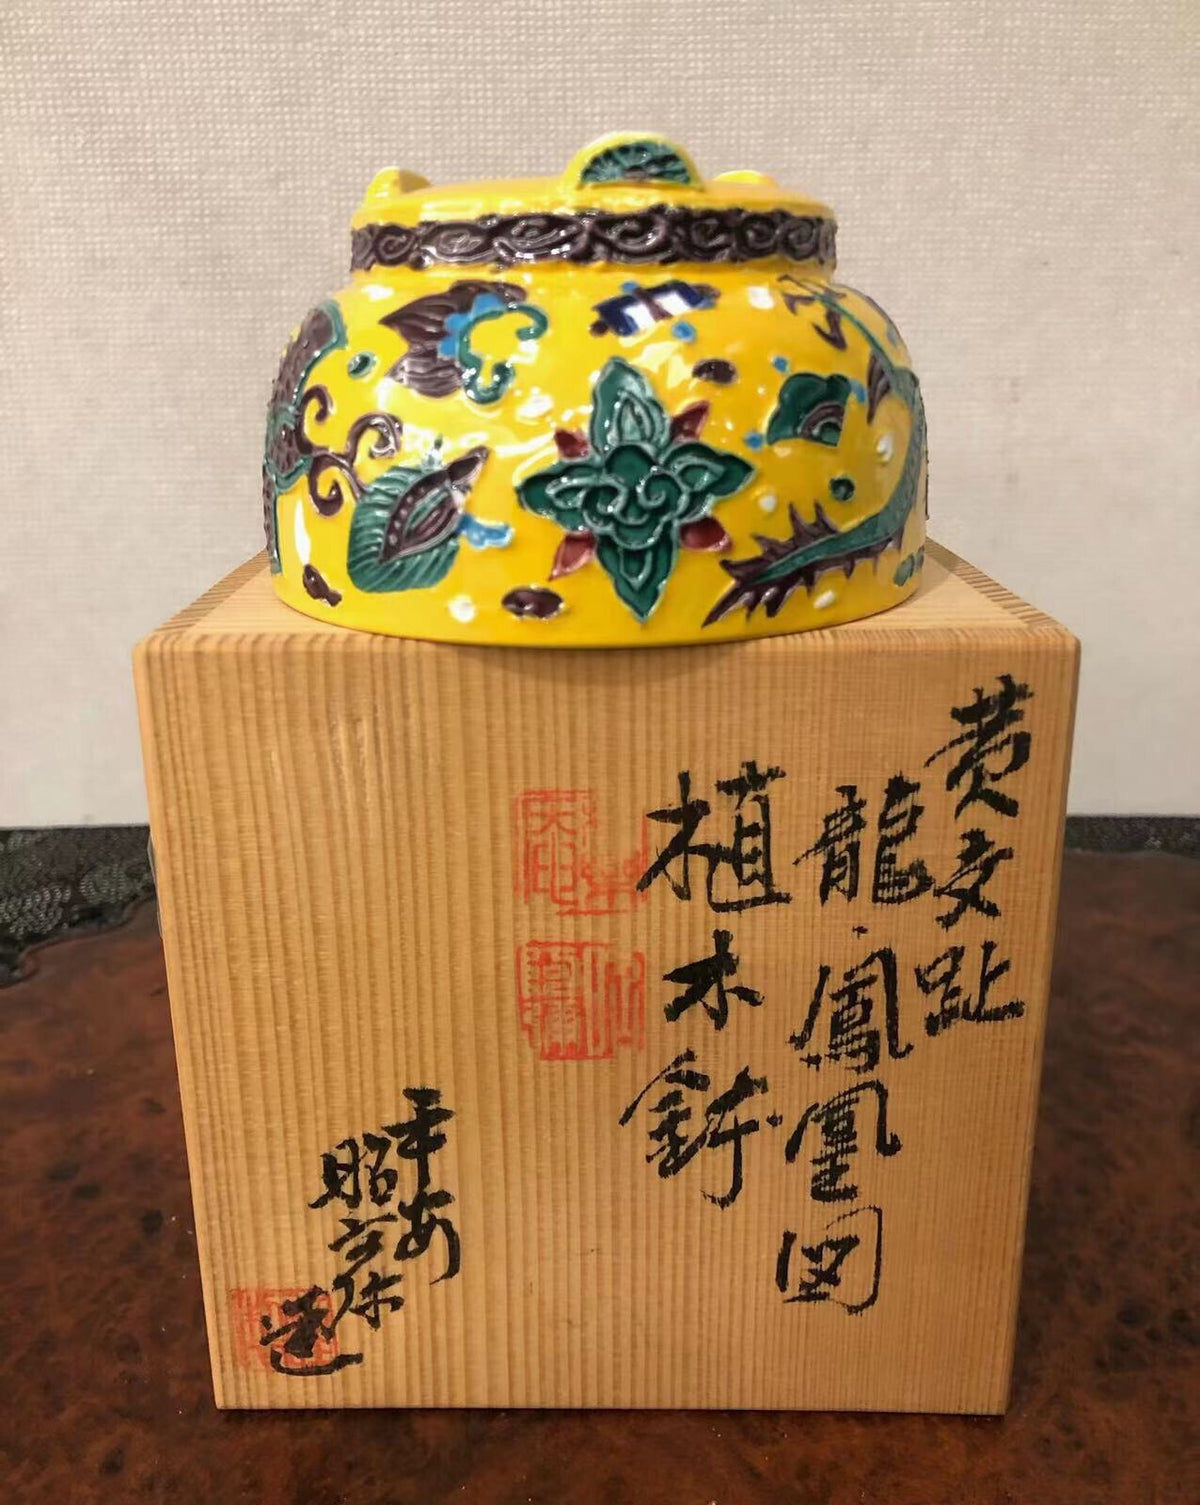 黄交趾
龍鳳凰図
植木鉢
平安
昭阿弥
造